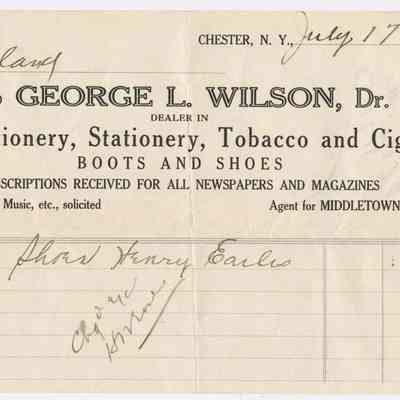 CHESTER, N. Y., July 17
land
GEORGE L. WILSON, Dr.
DEALER IN
tionery, Stationery, Tobacco and Cig
BOOTS AND SHOES
SCRIPTIONS RECEIVED FOR ALL NEWSPAPERS AND MAGAZINES
Music, etc., solicited Agent for MIDDLETOWN
Shoes Henry Earls